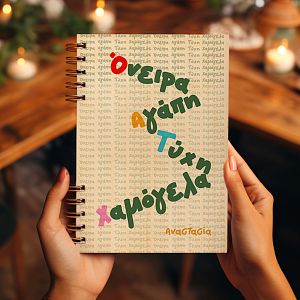 Όνειρα
Αγάπη
Τύχη
Χαμόγελα
Αναστασία